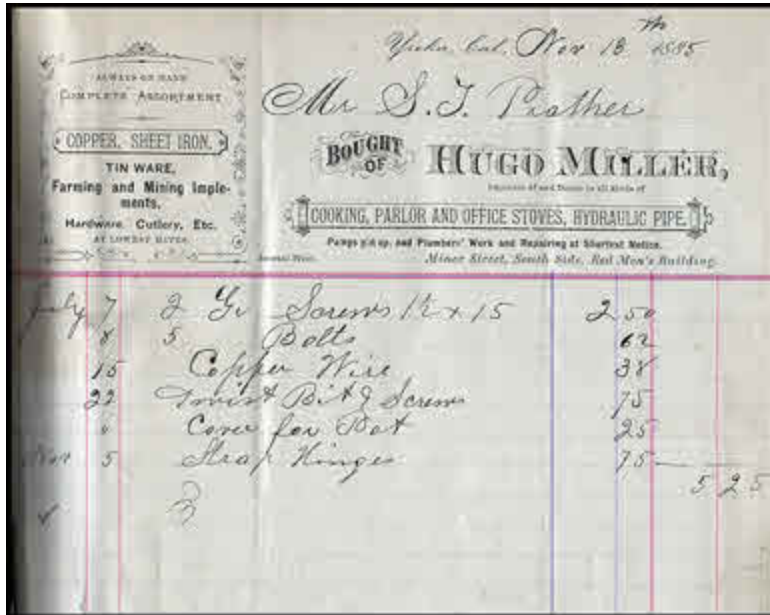 Yreka, Cal. Nov 13th 1885
Mr S. J. Prather
ALWAYS ON HAND
COMPLETE ASSORTMENT
COPPER, SHEET IRON,
TIN WARE,
Farming and Mining Imple-
ments,
Hardware, Cutlery, Etc.
AT LOWEST RATES.
BOUGHT OF HUGO MILLER,
Importer of and Dealer in all kinds of
COOKING, PARLOR AND OFFICE STOVES, HYDRAULIC PIPE.
Pumps put up, and Plumbers' Work and Repairing at Shortest Notice.
Miner Street, South Side, Red Men's Building.
July 7 2 Gr Screws 1½ x 15 2 50
8 5 Bolts 62
15 Copper Wire 38
22 Twist Bit & Screws 75
" Cover for Pot 25
Nov 5 Strap Hinges 75
5 25